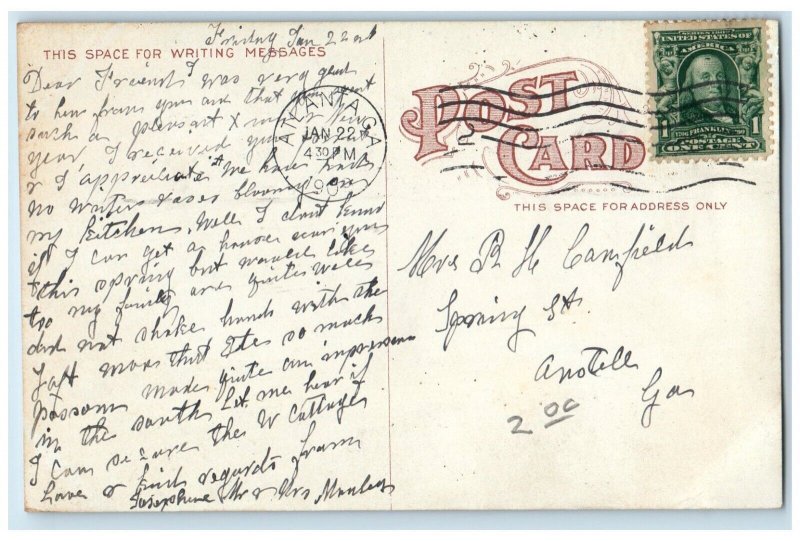 Friday Jan 22nd
THIS SPACE FOR WRITING MESSAGES
Dear Friend I was very glad
to hear from you and that you spent
such a pleasant X mas & New
year, I received your
& I appreciate it We have had
no Winter roses blooming
my Kitchen. Well I dont know
if I can get a house near you
this spring but would like
too my family are quite well
did not shake hands with the
Taft man that Ete so much
Possom made quite an impression
in the south Let me hear if
I can secure the W Cottage
Love & kind regards from
Josephine Mr & Mrs
ATLANTA, GA.
JAN 22
4 30 PM
POST
CARD
SERIES 1902
UNITED STATES OF
AMERICA
1 FRANKLIN 1
POSTAGE
ONE CENT
THIS SPACE FOR ADDRESS ONLY
Mrs R H Camfield
Spring St
Austell
Ga
2 00